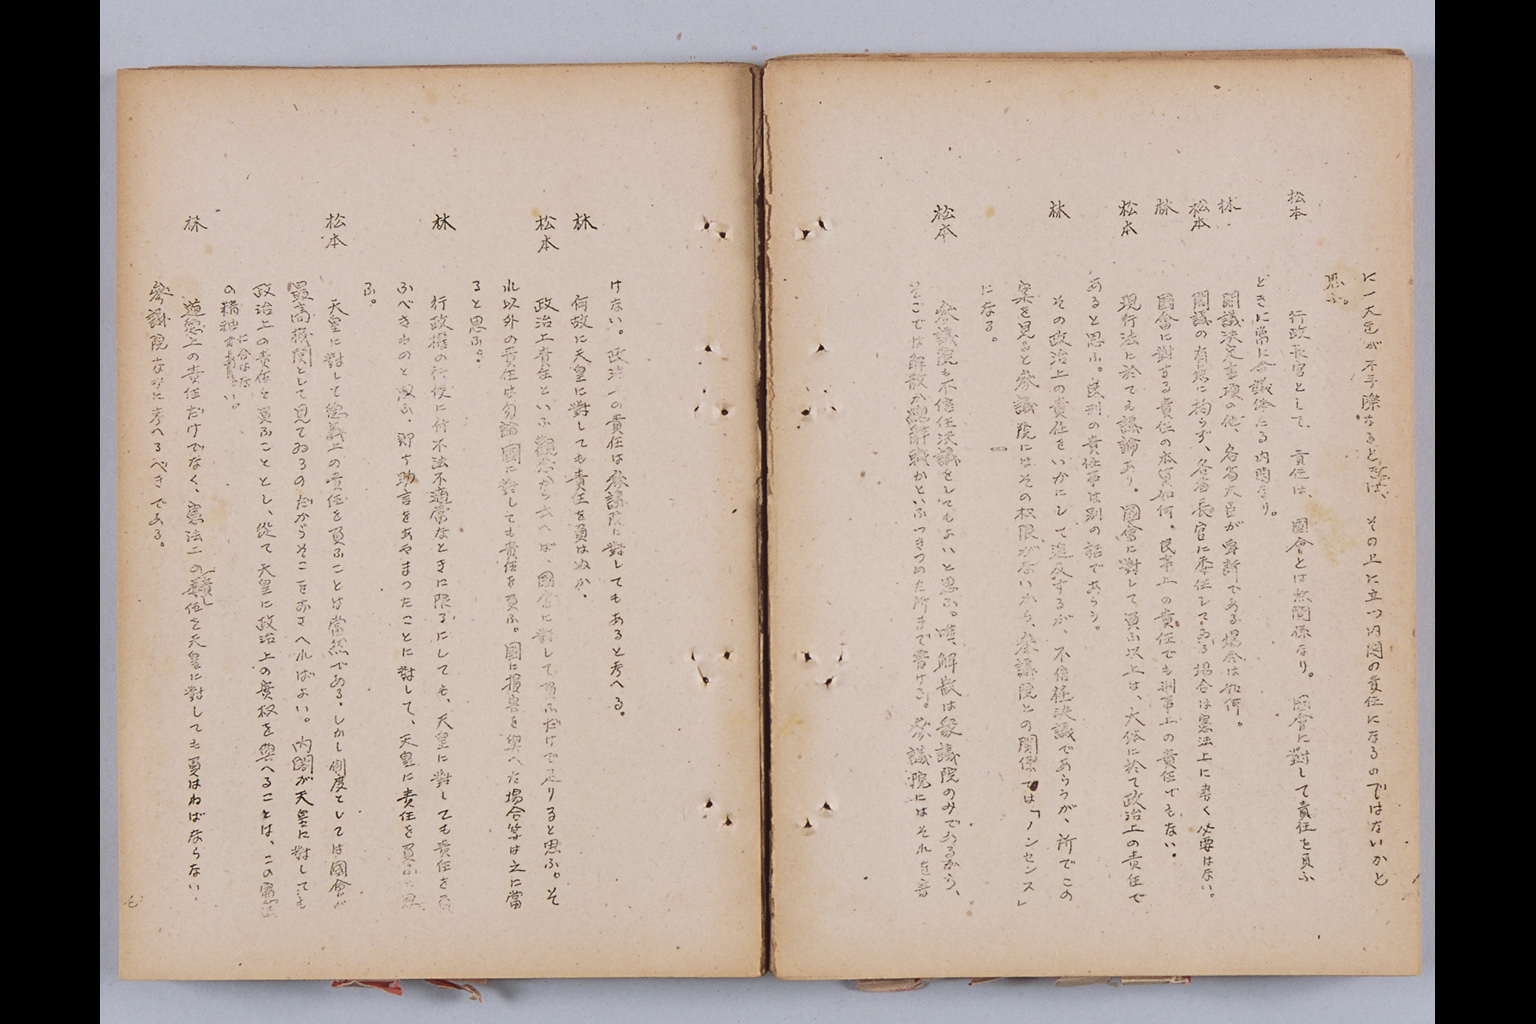 に一大臣が不手際なるときは、その上に立つ内閣の責任になるのではないかと
思ふ。
松本 行政長官として、責任は、國會とは無關係なり。國會に對して責任を負ふ
ときは常に合議体たる内閣なり。
林 閣議決定事項の他、各省大臣が専断である場合は如何。
松本 閣議の有無に拘らず、各省長官に委任してゐる場合は憲法上に書く必要はない。
林 國會に對する責任の本質如何。民事上の責任でも刑事上の責任でもない。
松本 現行法に於ても議論あり。國會に對して負ふ以上は、大体に於て政治上の責任で
あると思ふ。民刑の責任等は別の話であらう。
林 その政治上の責任をいかにして追及するか、不信任決議であらうが、所でこの
案を見ると參議院にはその权限がないから、參議院との関係では「ノンセンス」
になる。
松本 參議院も不信任決議をしてもよいと思ふ。唯、解散は衆議院のみであるから、
そこでは解散か總辞職かといふつきつめた所まで書ける。參議院にはそれを書
けない。政治上の責任は參議院に對してもあると考へる。
林 何故に天皇に對しても責任を負はぬか、
松本 政治上責任といふ觀念から云へば、國會に對して負ふだけで足りると思ふ。そ
れ以外の責任は勿論國に對しても責任を負ふ。國に損害を與へた場合等は之に當
ると思ふ。
林 行政權の行使に付不法不適當なときに限るにしても、天皇に對しても責任を負
ふべきものと思ふ、即ち助言をあやまつたことに對して、天皇に責任を負ふと思
ふ。
松本 天皇に對して德義上の責任を負ふことは當然である。しかし制度としては國會が
最高機関として見てゐるのだからそこをおさへればよい。内閣が天皇に對しても
政治上の責任を負ふこととし、從て天皇に政治上の實权を與へることは、この憲法
の精神に合はない。
林 道德上の責任だけでなく、憲法上の責任を天皇に對しても負はねばならない。
參議院なみに考へるべきである。